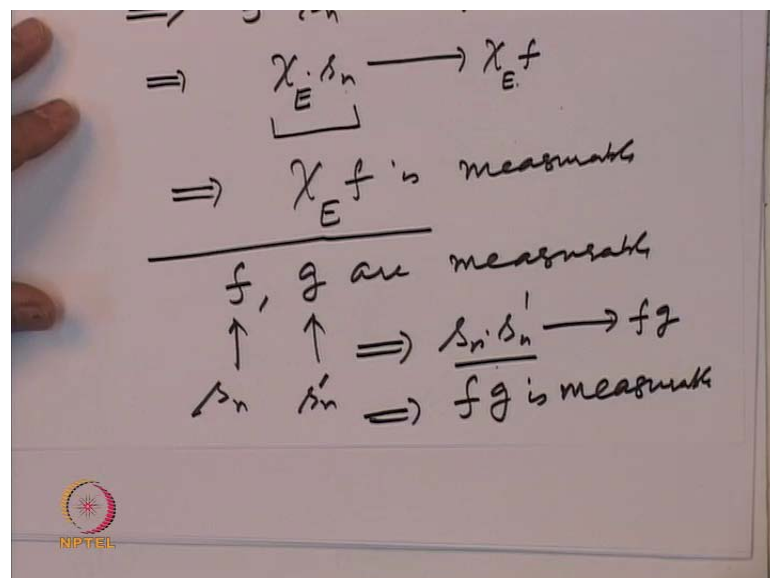 ⇒ χ_E · s_n ⟶ χ_E f
⇒ χ_E f is measurable
f, g are measurable
↑ ↑ ⇒ s_n · s_n' ⟶ fg
s_n s_n' ⇒ fg is measurable
NPTEL